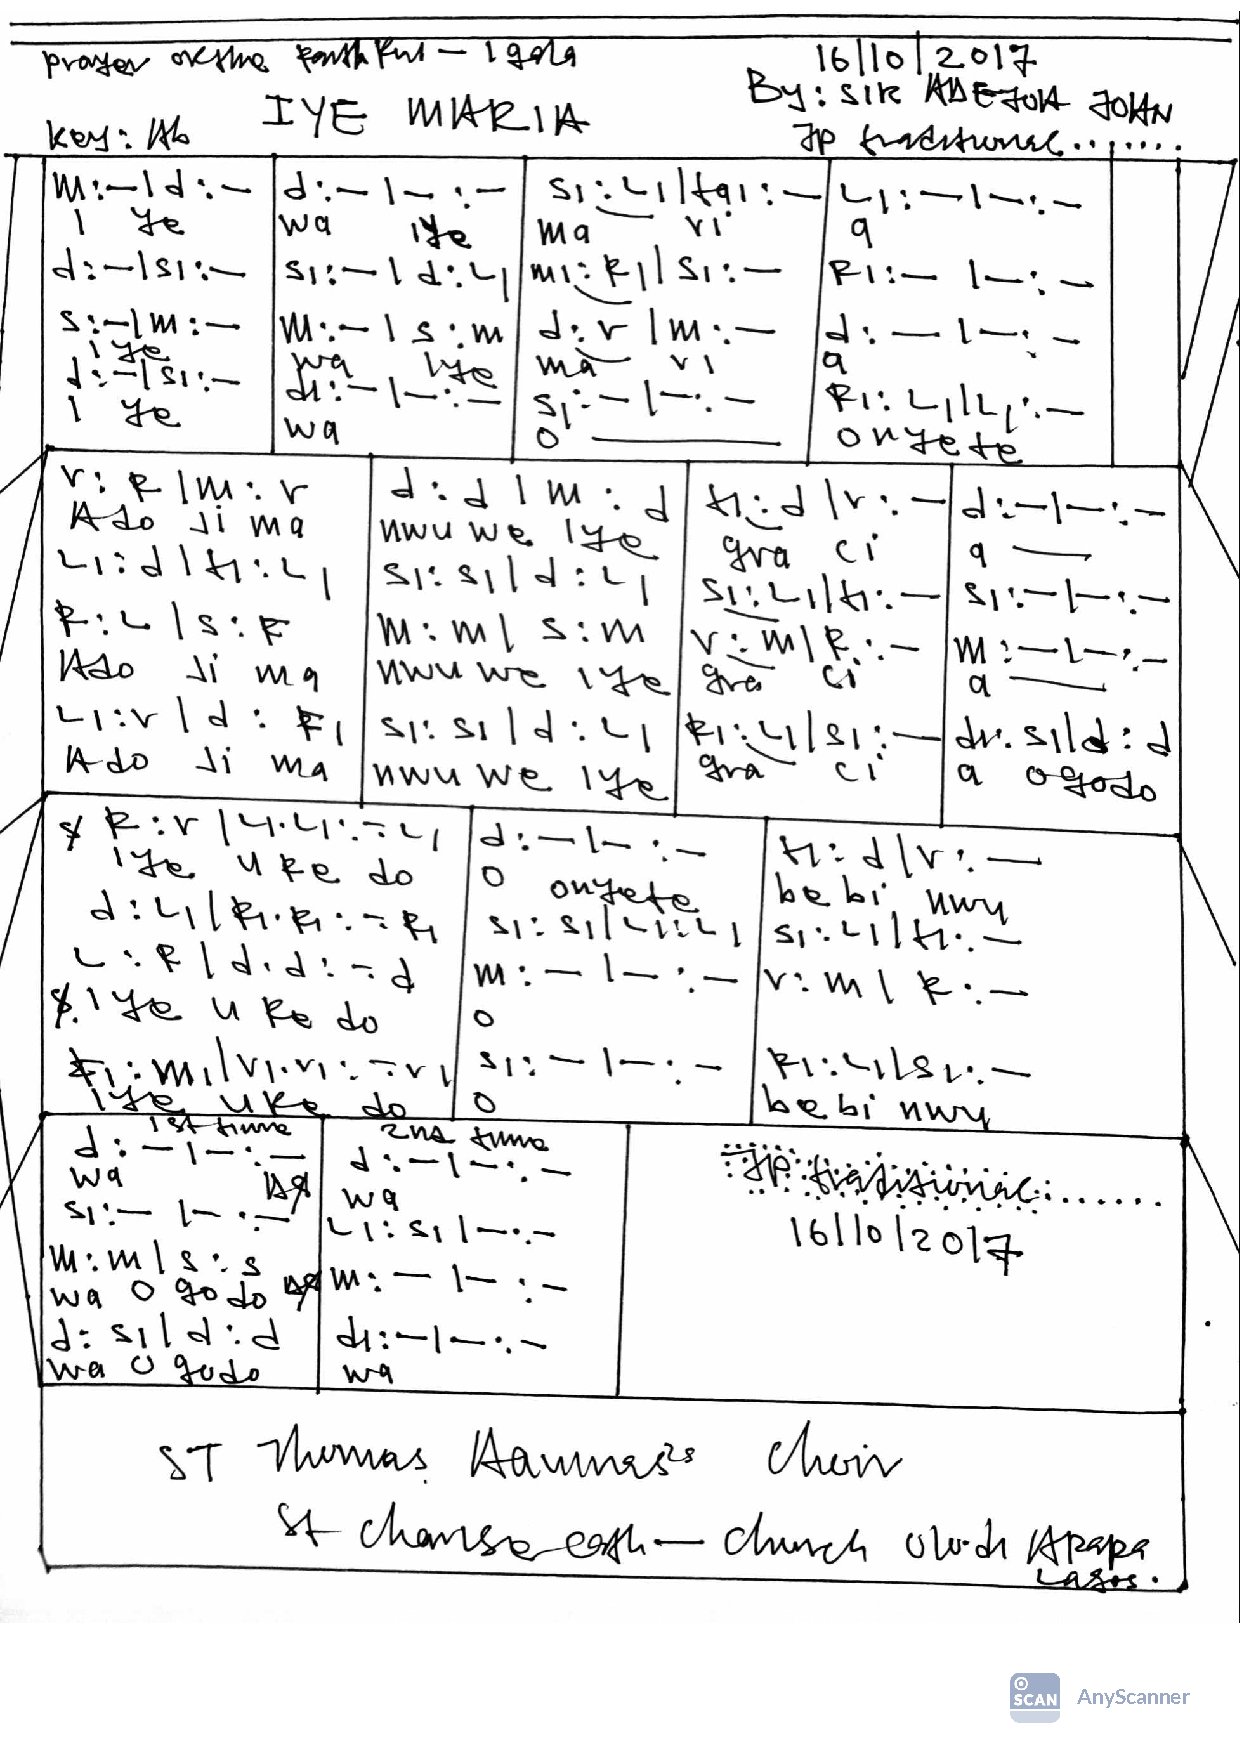 prayer of the faithful – Igala
16/10/2017
IYE MARIA
By: SIR ADEJOH JOHN
Key: Ab
JP traditional.......
m:–|d:– d:–|–:– s1:L1|ta1:– L1:–|–:–
I ye wa iye ma ri a
d:–|s1:– s1:–|d:L1 m1:f1|s1:– f1:–|–:–
s:–|m:– m:–|s:m d:r|m:– d:–|–:–
I ye wa iye ma ri a
d:–|s1:– d1:–|–:– s1:–|–:– f1:L1|L1:–
I ye wa O onyete
r:f|m:r d:d|m:d t1:d|r:– d:–|–:–
Ado Ji ma nwu we iye gra ci a
L1:d|t1:L1 s1:s1|d:L1 s1:L1|t1:– s1:–|–:–
f:L|s:f m:m|s:m r:m|f:– m:–|–:–
Ado Ji ma nwu we iye gra ci a
L1:r|d:f1 s1:s1|d:L1 f1:L1|s1:– d1.s1|d:d
Ado Ji ma nwu we iye gra ci a ogodo
f:r|L1.L1:–L1 d:–|–:– t1:d|r:–
iye u ke do O onyete be bi nwu
d:L1|f1.f1:–f1 s1:s1|L1:L1 s1:L1|t1:–
L:f|d.d:–d m:–|–:– r:m|f:–
$. iye u ke do O
f1:m1|r1.r1:–r1 s1:–|–:– f1:L1|s1:–
iye u ke do O be bi nwu
1st time 2nd time
d:–|–:– d:–|–:–
wa wa
s1:–|–:– L1:s1|–:–
m:m|s:s m:–|–:–
wa O godo
d:s1|d:d d1:–|–:–
wa O godo wa
JP traditional:......
16/10/2017
ST Thomas Choir
St Church Olodi Apapa
Lagos.
SCAN AnyScanner